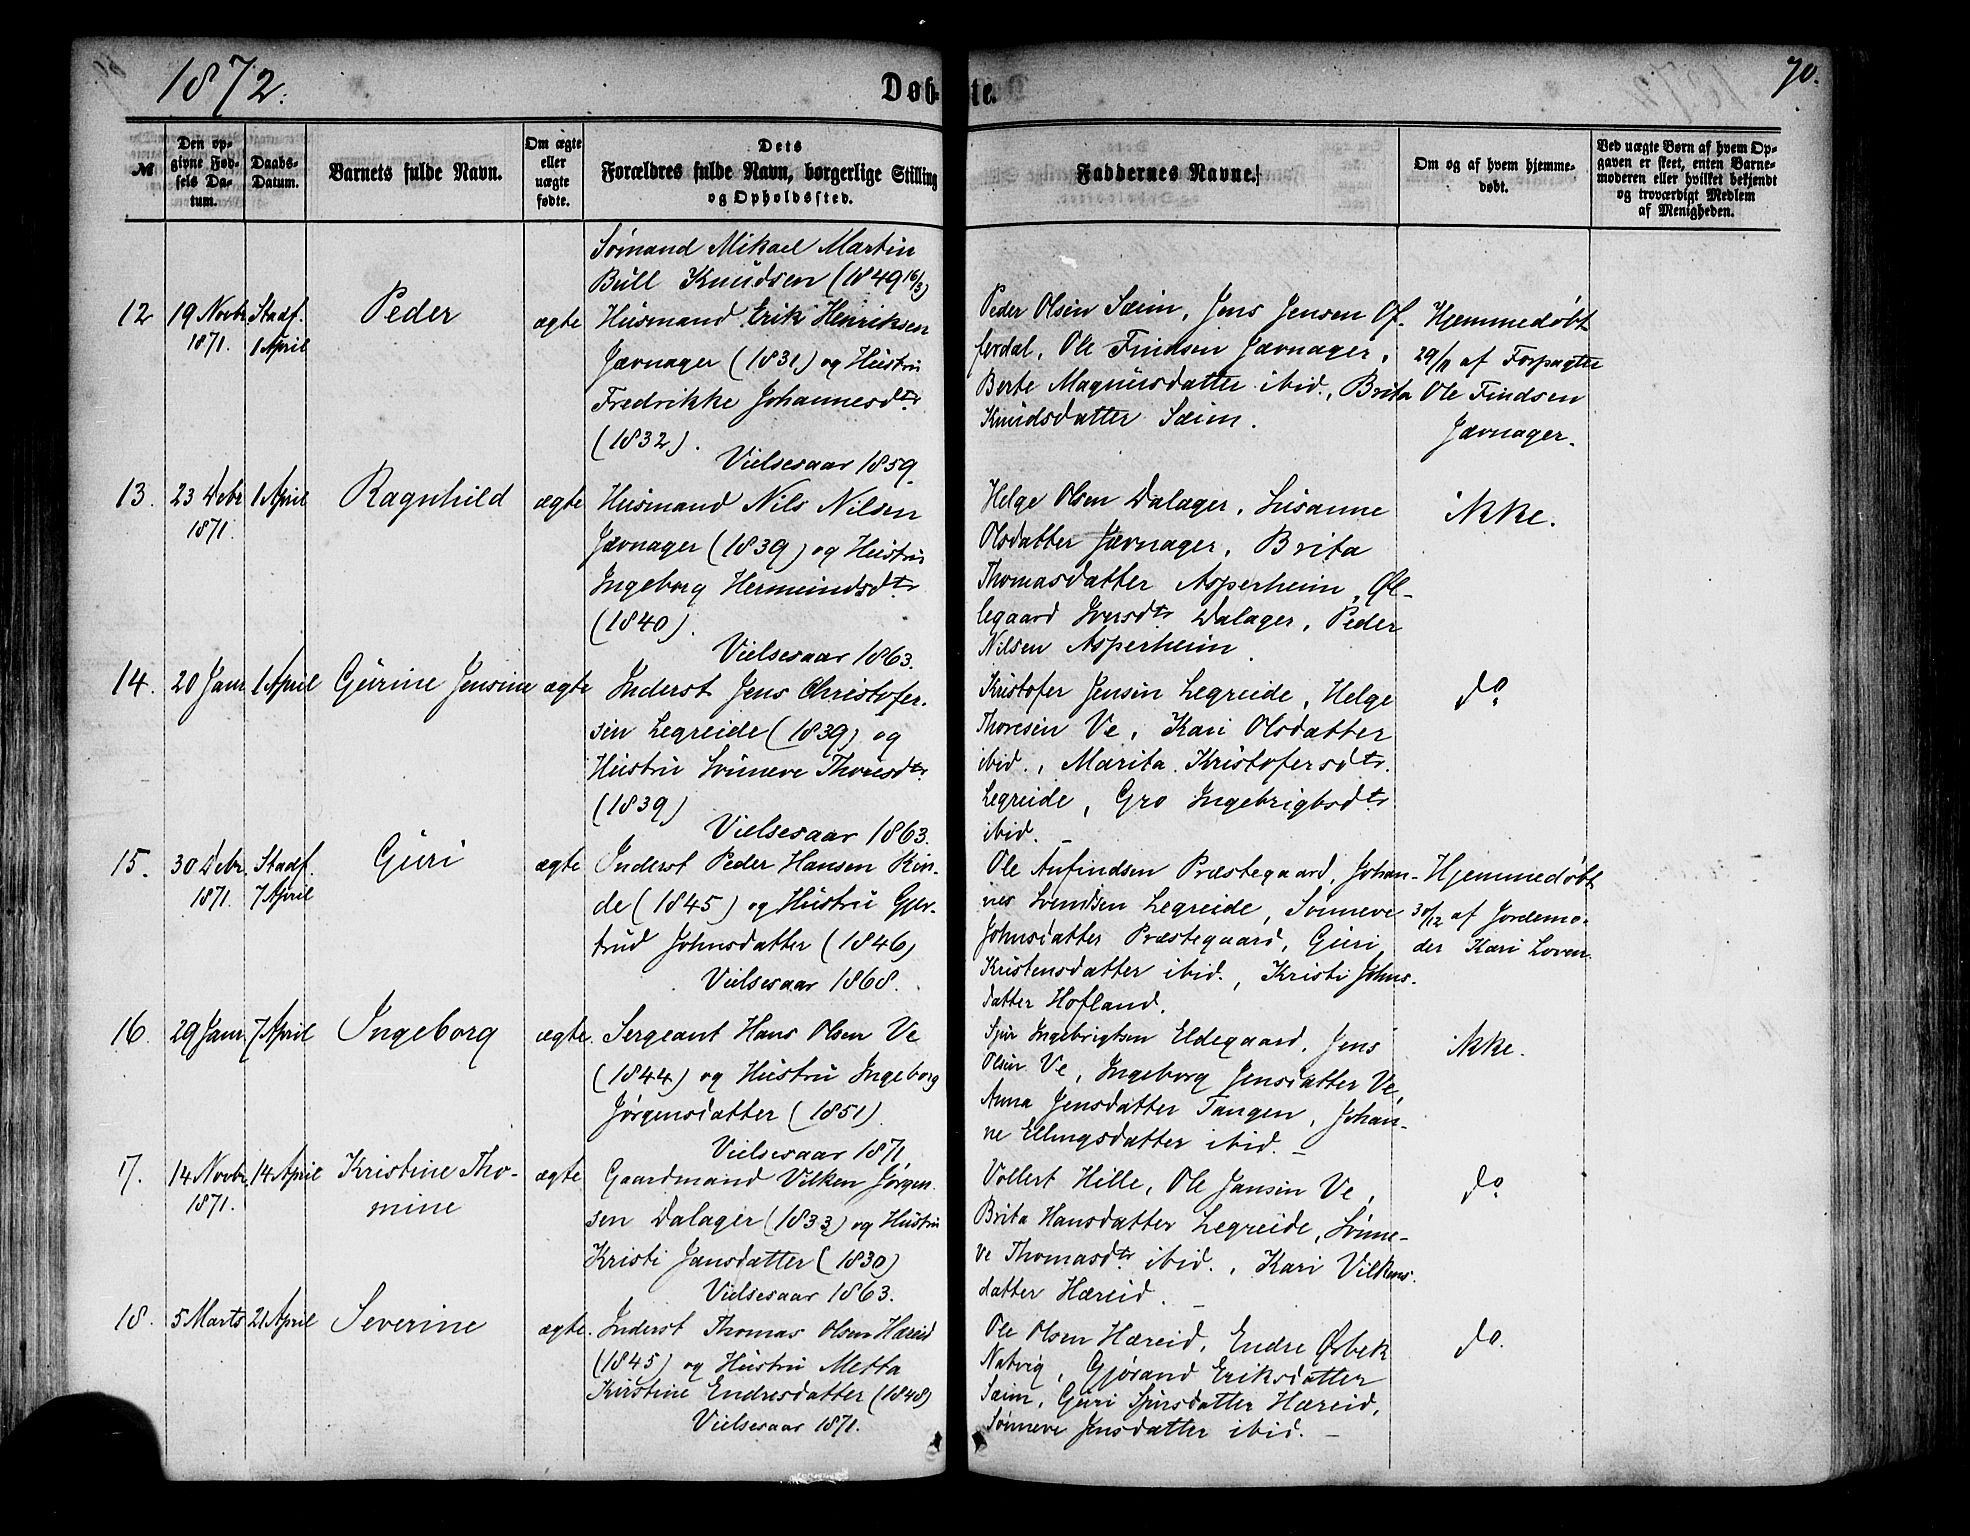 1872.
Døb-
te.
70.
№
Den op-
givne Fød-
sels Da-
tum.
Daabs-
Datum.
Barnets fulde Navn.
Om ægte
eller
uægte
fødte.
Dets
Forældres fulde Navn, borgerlige Stilling
og Opholdssted.
Faddernes Navne.
Om og af hvem hjemme-
døbt.
Ved uægte Børn af hvem Op-
gaven er skeet, enten Barne-
moderen eller hvilket bekjendt
og troværdigt Medlem
af Menigheden.
Sømand Mikael Martin
Bull Knudsen (1849 16/3)
12
19 Novbr
1871.
Stadf.
1 April
Peder
ægte
Husmand Erik Henriksen
Jævnager (1831) og Hustru
Fredrikke Johannesdtr
(1832).
Vielsesaar 1859.
Peder Olsen Sæim, Jens Jensen Of-
ferdal, Ole Findsen Jævnager,
Berte Magnusdatter ibid., Brita
Knudsdatter Sæim.
Hjemmedøbt
29/11 af Forpagter
Ole Findsen
Jævnager.
13.
23 Debr
1871.
1 April
Ragnhild
ægte
Husmand Nils Nilsen
Jævnager (1839) og Hustru
Ingeborg Hermundsdtr
(1840).
Vielsesaar 1863.
Helge Olsen Dalager, Susanne
Olsdatter Jævnager, Brita
Thomasdatter Asperheim, Øl-
legaard Iversdtr Dalager, Peder
Nilsen Asperheim
ikke.
14.
20 Janr
1 April
Gurine Jensine
ægte
Inderst Jens Christofer-
sen Legreide (1839) og
Hustru Synneve Thoresdtr
(1839)
Vielsesaar 1863.
Kristofer Jensen Legreide, Helge
Thoresen Ve, Kari Olsdatter
ibid., Marita Kristofersdtr.
Legreide, Gro Ingebrigtsdtr
ibid. –
do
15.
30 Debr
1871.
Stadf.
7 April
Guri
ægte
Inderst Peder Hansen Kin-
de (1845) og Hustru Gjer-
trud Johnsdatter (1846)
Vielsesaar 1868.
Ole Anfindsen Præstegaard, Johan-
nes Svendsen Legreide, Sønneve
Johnsdatter Præstegaard, Guri
Kristensdatter ibid., Kristi Johns-
datter Hofland.
Hjemmedøbt
30/12 af Jordemo-
der Kari Loven.
16.
29 Janr
7 April
Ingeborg
ægte.
Sergeant Hans Olsen Ve
(1844) og Hustru Ingeborg
Jørgensdatter (1851)
Vielsesaar 1871
Sjur Ingebrigtsen Eldegaard, Jens
Olsen Ve, Ingeborg Jensdatter Ve,
Anna Jensdatter Tangen, Johan-
ne Ellingsdatter ibid. –
ikke.
17.
14 Novbr
1871.
14 April
Kristine Tho-
mine
ægte
Gaardmand Vilken Jørgen-
sen Dalager (1833) og Hustru
Kristi Jansdatter (1830)
Vielsesaar 1863.
Vollert Hille, Ole Jansen Ve,
Brita Hansdatter Legreide, Sønne-
ve Thomasdtr ibid., Kari Vilkens-
datter Hæreid. –
do
18.
5 Marts
21 April
Severine
ægte.
Inderst Thomas Olsen Hæreid
(1845) og Hustru Metta
Kirstine Endresdatter (1848)
Vielsesaar 1871.
Ole Olsen Hæreid, Endre Øsbek
Natvig, Gjørand Eriksdatter
Sæim, Guri Sjursdatter Hæreid,
Sønneve Jensdatter ibid. –
do.